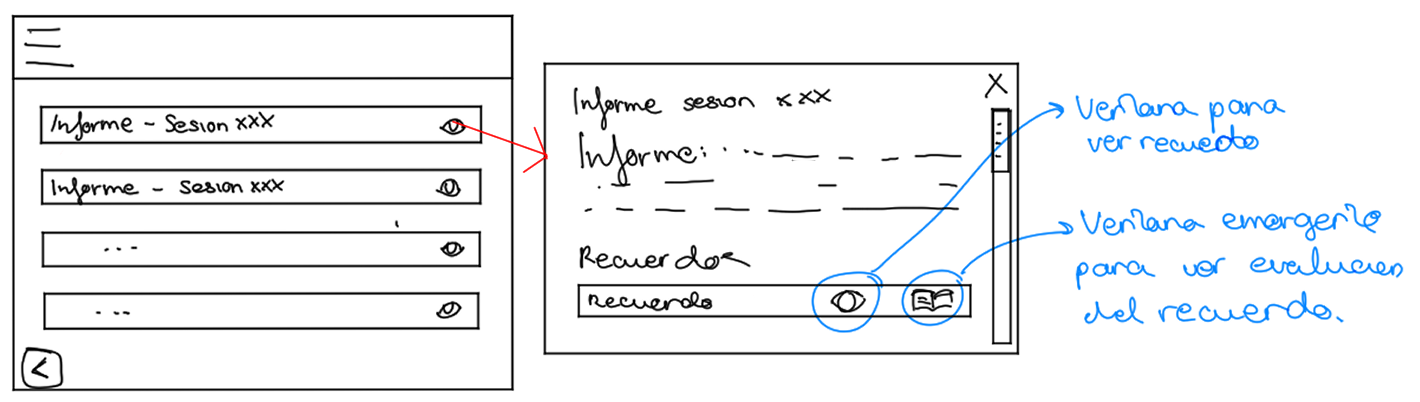 Informe - Sesion xxx
Informe - Sesion xxx
...
...
<
Informe sesion xxx
X
Informe: ...
Recuerdos
Recuerdo
Ventana para
ver recuerdo
Ventana emergente
para ver evaluacion
del recuerdo.